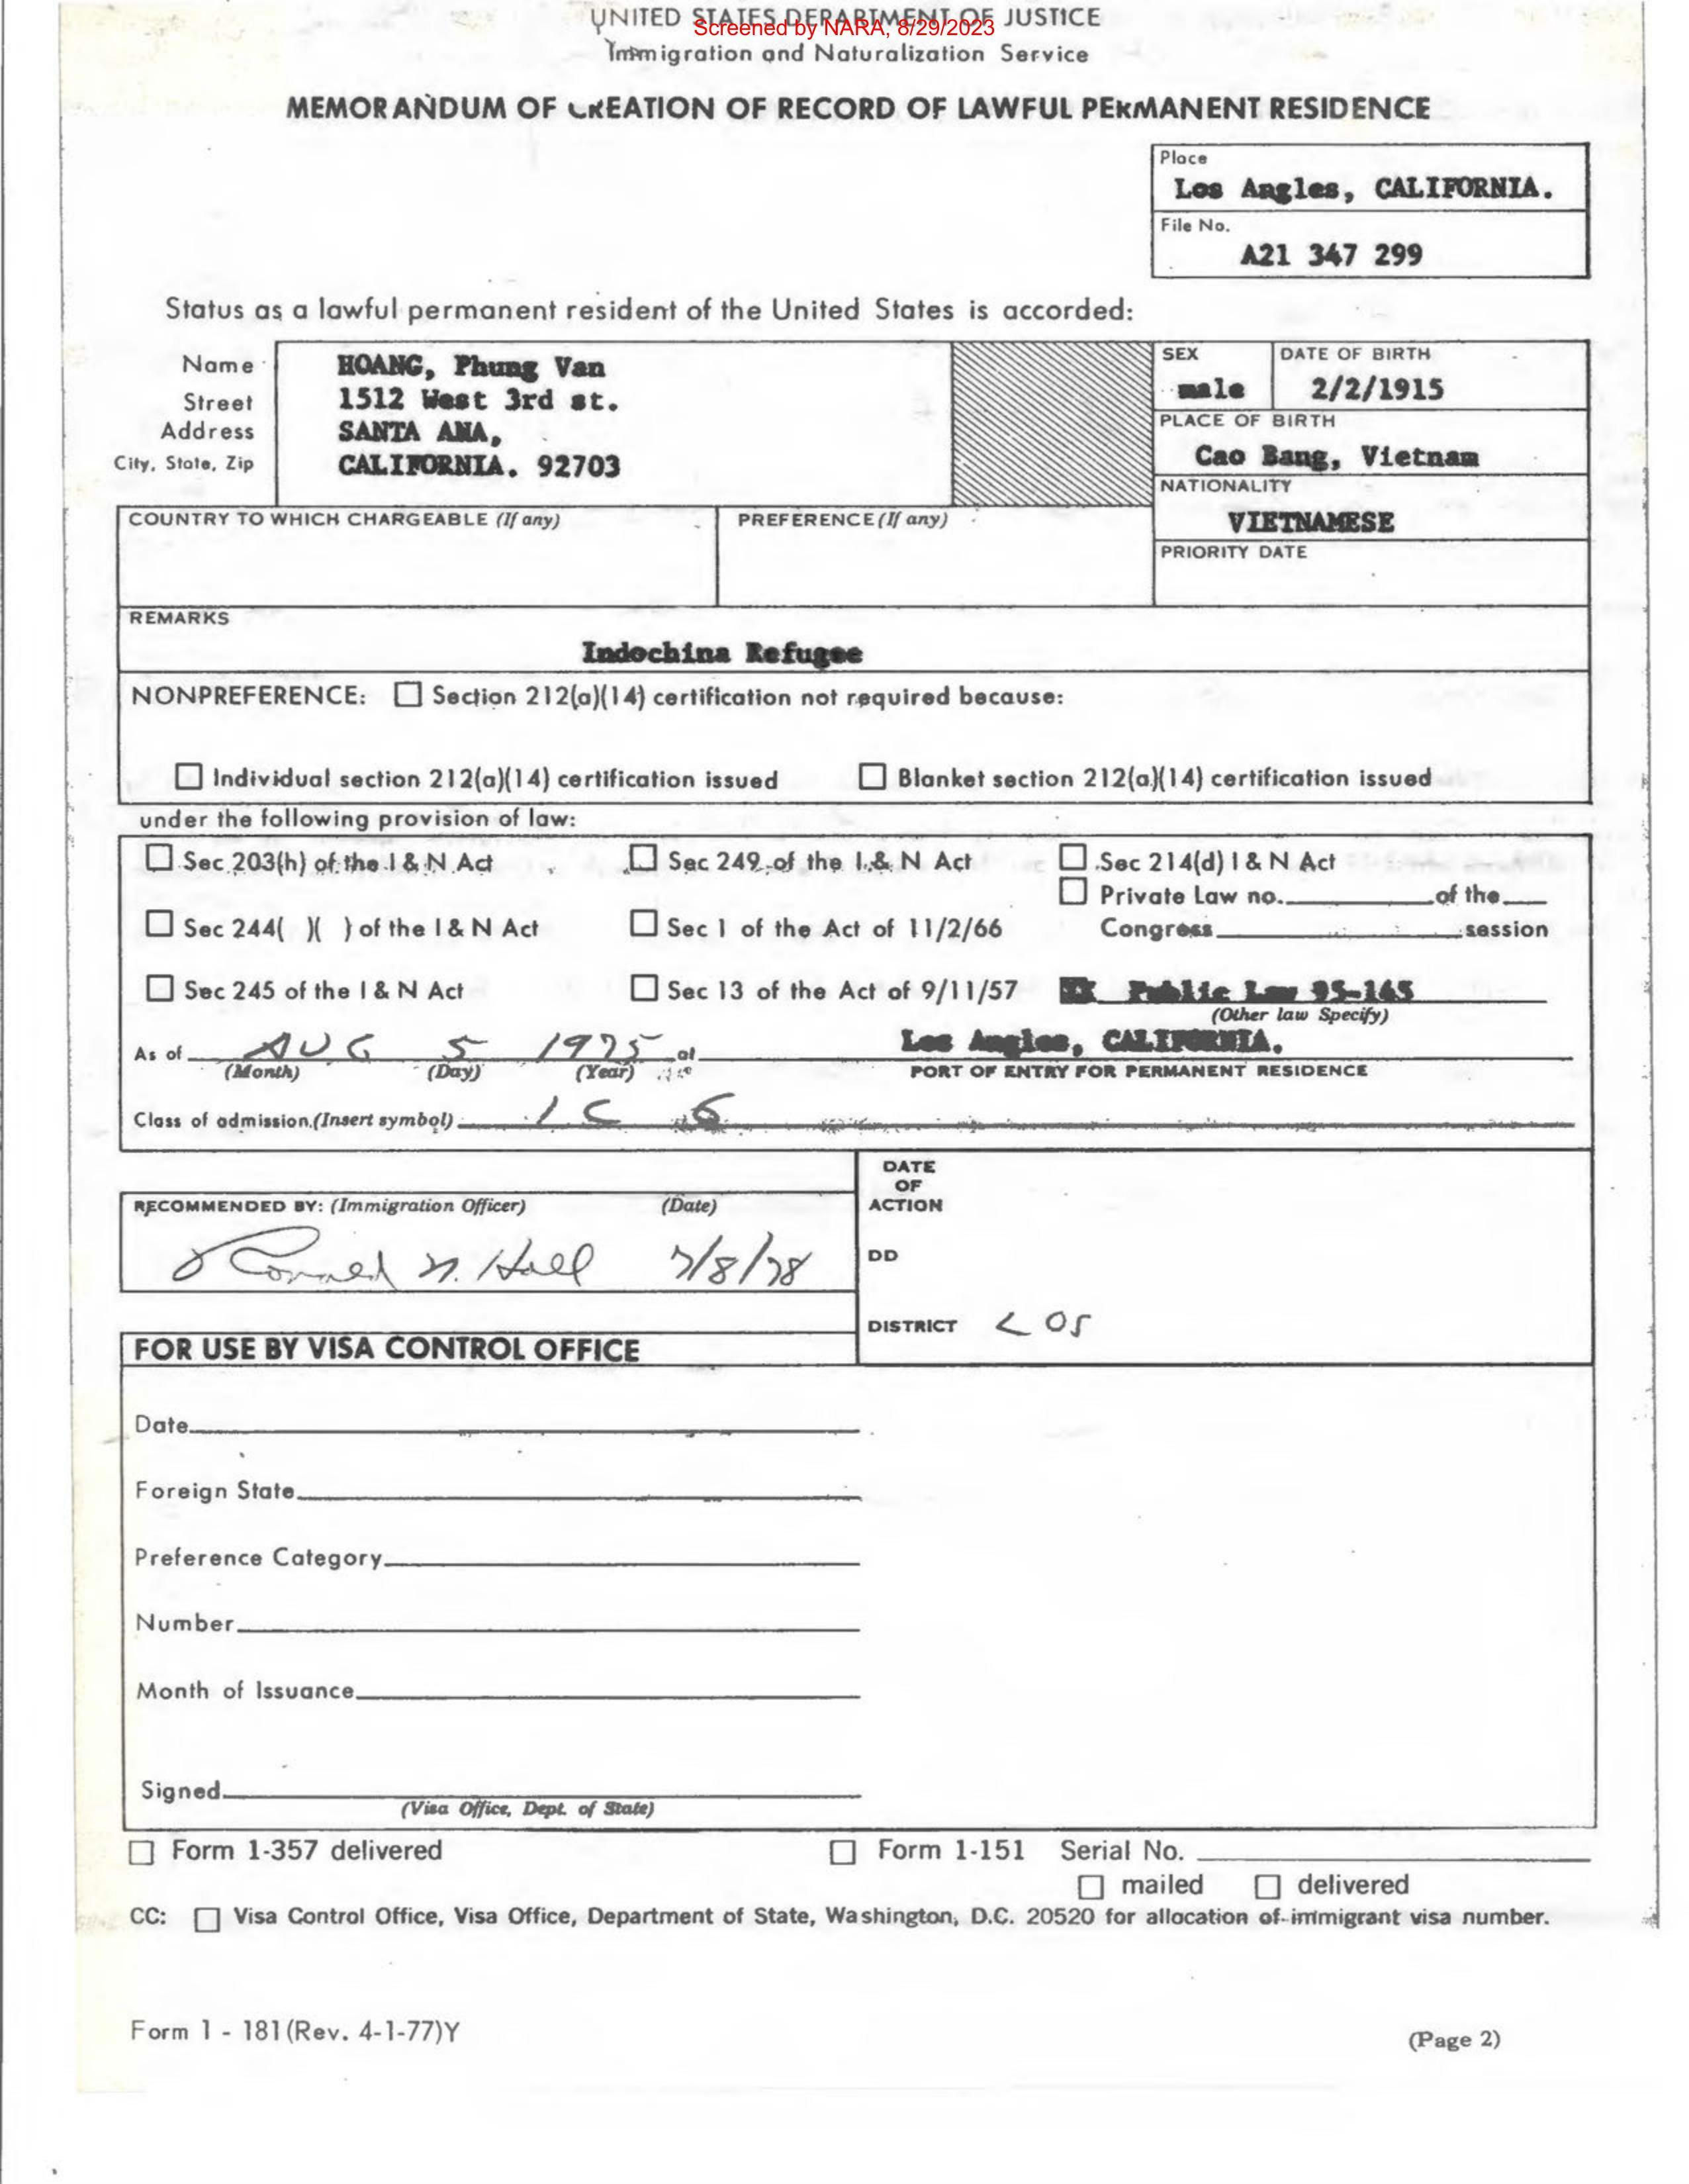 UNITED STATES DEPARTMENT OF JUSTICE
Screened by NARA, 8/29/2023
Immigration and Naturalization Service
MEMORANDUM OF CREATION OF RECORD OF LAWFUL PERMANENT RESIDENCE
Place
Los Angles, CALIFORNIA.
File No.
A21 347 299
Status as a lawful permanent resident of the United States is accorded:
Name HOANG, Phung Van
Street 1512 West 3rd st.
Address SANTA ANA,
City, State, Zip CALIFORNIA. 92703
SEX male
DATE OF BIRTH 2/2/1915
PLACE OF BIRTH
Cao Bang, Vietnam
NATIONALITY
VIETNAMESE
COUNTRY TO WHICH CHARGEABLE (If any) PREFERENCE (If any)
PRIORITY DATE
REMARKS
Indochina Refugee
NONPREFERENCE: ☐ Section 212(a)(14) certification not required because:
☐ Individual section 212(a)(14) certification issued ☐ Blanket section 212(a)(14) certification issued
under the following provision of law:
☐ Sec 203(h) of the I & N Act ☐ Sec 249 of the I & N Act ☐ Sec 214(d) I & N Act
☐ Private Law no. of the
☐ Sec 244( )( ) of the I & N Act ☐ Sec 1 of the Act of 11/2/66 Congress session
☐ Sec 245 of the I & N Act ☐ Sec 13 of the Act of 9/11/57 XX Public Law 95-145
(Other law Specify)
As of AUG 5 1975 at Los Angles, CALIFORNIA.
(Month) (Day) (Year) PORT OF ENTRY FOR PERMANENT RESIDENCE
Class of admission (Insert symbol) IC 6
DATE
OF
ACTION
RECOMMENDED BY: (Immigration Officer) (Date)
N. Hall 7/8/78
DD
DISTRICT LOS
FOR USE BY VISA CONTROL OFFICE
Date
Foreign State
Preference Category
Number
Month of Issuance
Signed
(Visa Office, Dept. of State)
☐ Form 1-357 delivered ☐ Form 1-151 Serial No.
☐ mailed ☐ delivered
CC: ☐ Visa Control Office, Visa Office, Department of State, Washington, D.C. 20520 for allocation of immigrant visa number.
Form 1 - 181 (Rev. 4-1-77)Y
(Page 2)